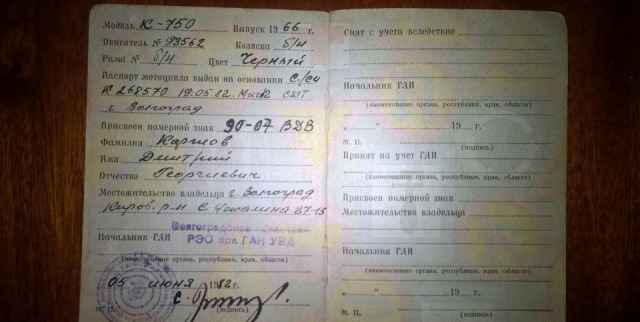 Модель К-750 Выпуск 1966 г.
Двигатель № 93562 Коляска б/н
Рамы № б/н Цвет Черный
Паспорт мотоцикла выдан на основании С/сч
К 268570 19.05.82. Маск СМТ
г. Волгоград
Присвоен номерной знак 90-07 ВДВ
Фамилия Карпов
Имя Дмитрий
Отчество Георгиевич
Местожительство владельца г. Волгоград
Киров. р-н 87-15
Волгоградское
РЭО при ГАИ УВД
Начальник ГАИ
(наименование органа, республики, края, области)
05 июня 1982 г.
М. П. (подпись)
Снят с учета вследствие
Начальник ГАИ
(наименование органа, республики, края, области)
" " 19 г.
М. П. (подпись)
Принят на учет ГАИ
(наименование органа, республики, края, области)
Присвоен номерной знак
Местожительство владельца
Начальник ГАИ
(наименование органа, республики, края, области)
" " 19 г.
М. П. (подпись)